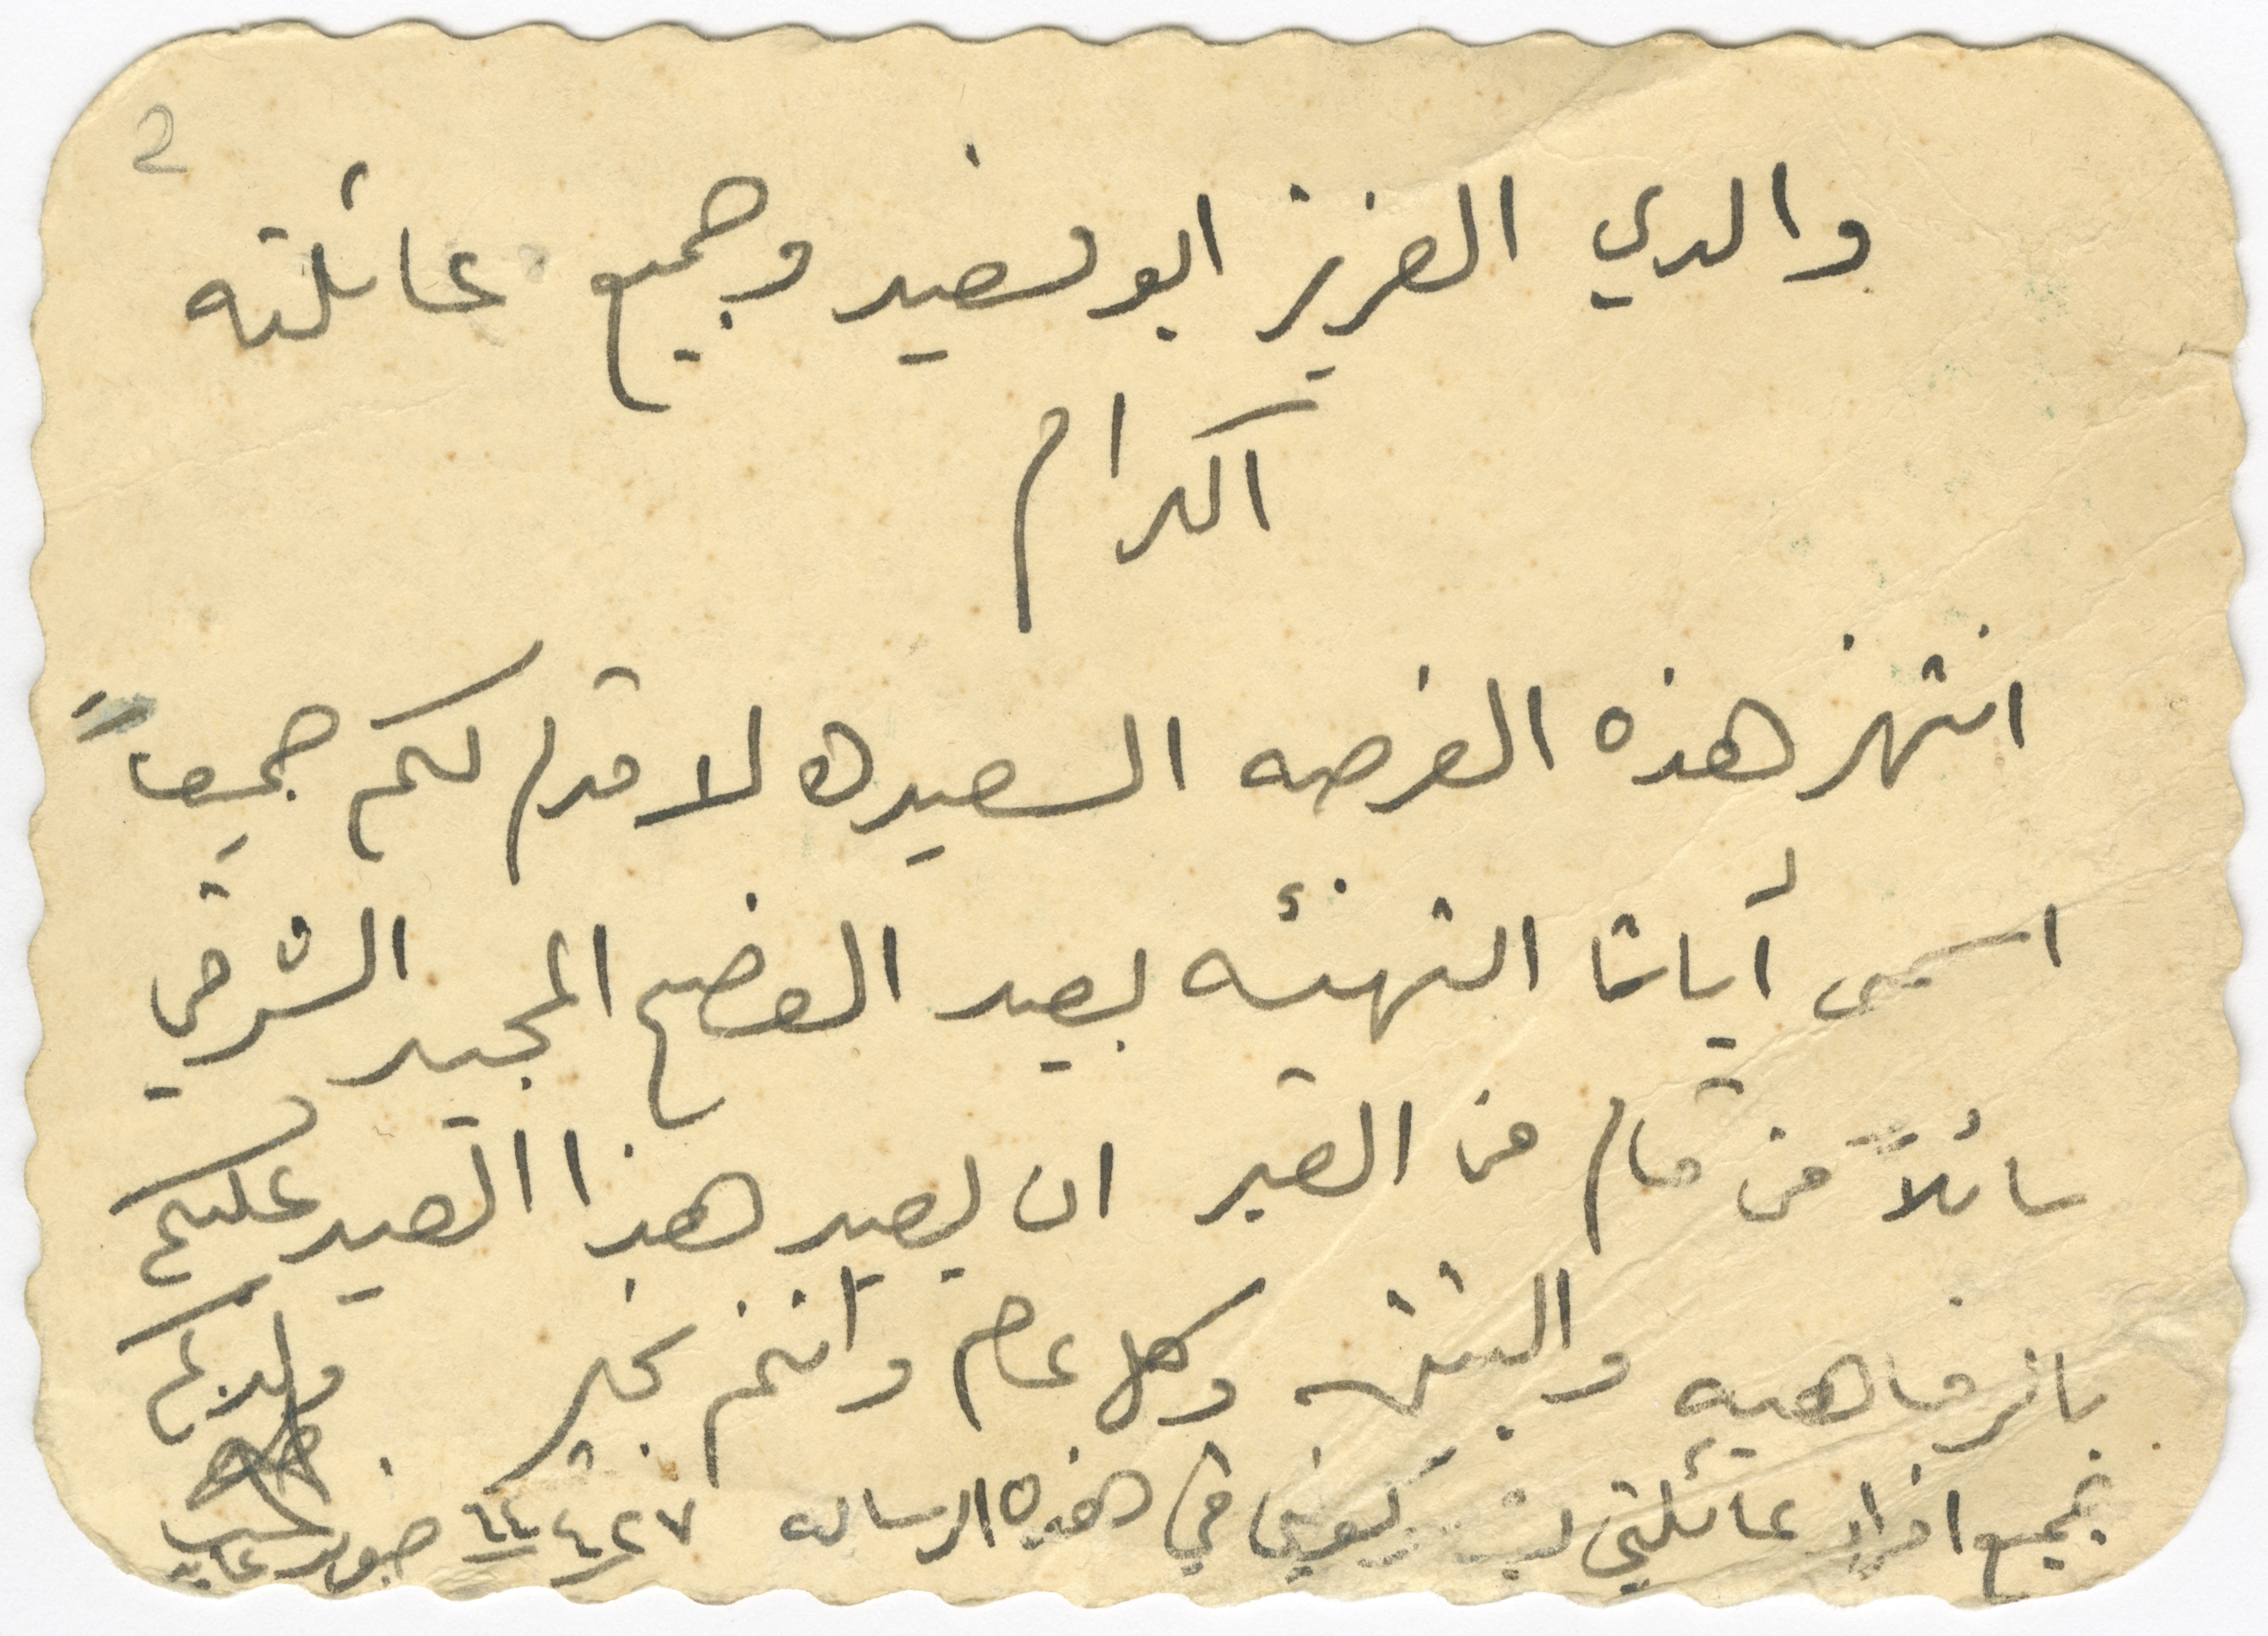 2
والدي العزيز ابو سعيد وجميع عائلته
الكرام
انتهز هذه الفرصه السعيده لاقدم لكم جميعاً
اسمى أيات التهنئه بعيد الفصح المجيد الشرقي
سائلاً من قام من القبر ان يعيد هذا العيد عليكم
بالرفاهيه والبنين وكل عام وانتم بخير ولدكم
جميع افراد عائلتي يشاركونني في هذه الرساله ٢٧ ٤ ٦٤